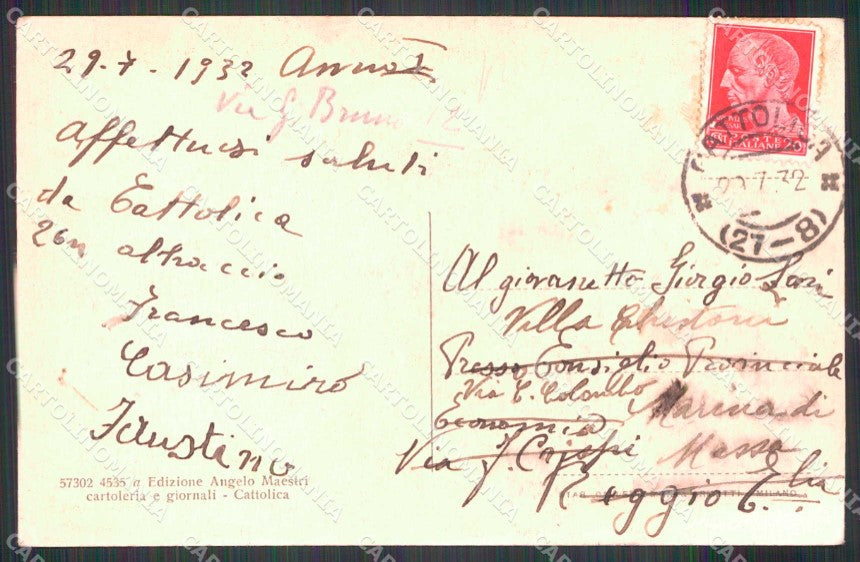 29-7-1932 Anno X
Via G. Bruno 12
Affettuosi saluti
da Cattolica
abbraccio
Francesco
Casimiro
Faustino
57302 4535 a Edizione Angelo Maestri
cartoleria e giornali - Cattolica
POSTE
ITALIANE
CATTOLICA
7.32
(27-8)
Al giovanetto Giorgio
Villa
Presso Consiglio Provinciale
Via C. Colombo
Economia
Marina di
Massa
Via F. Crispi
Reggio Elia
CARTOLINOMANIA